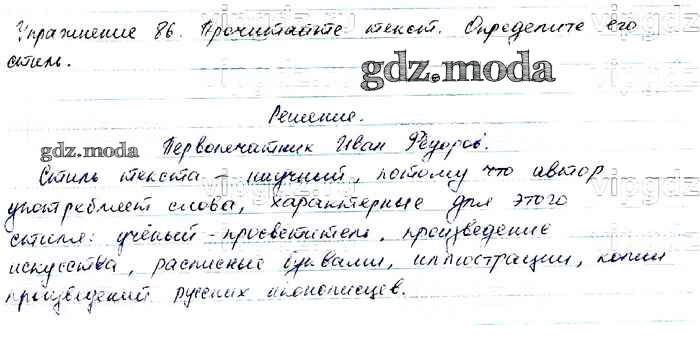 Упражнение 86. Прочитайте текст. Определите его
стиль.
gdz.moda
Решение.
gdz.moda Первопечатник Иван Фёдоров.
Стиль текста - научный, потому что автор
употребляет слова, характерные для этого
стиля: учёный-просветитель, произведение
искусства, расписные буквами, иллюстрации, копии
произведений русских иконописцев.